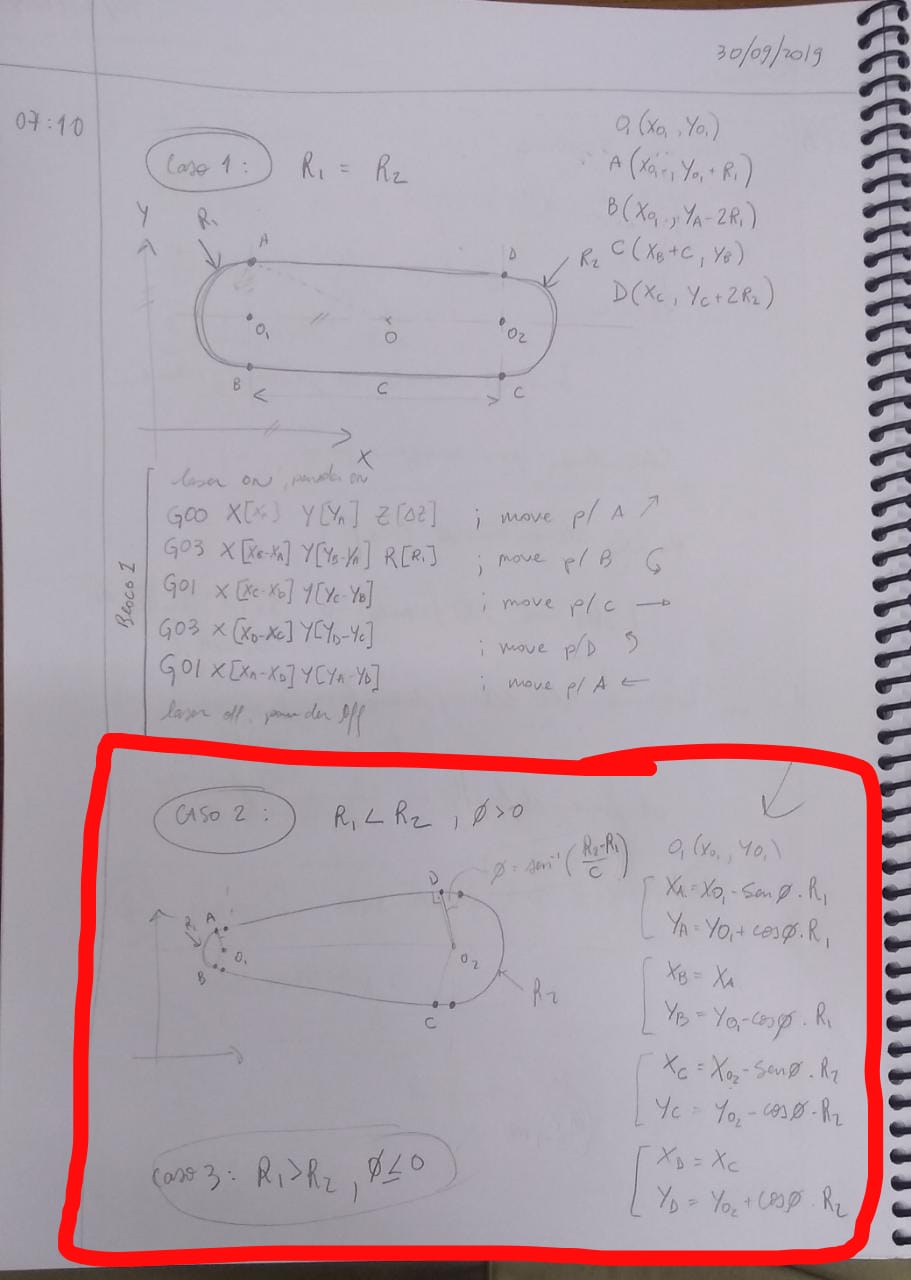 30/09/2019
07:10
Caso 1: R₁ = R₂
O₁(X₀₁, Y₀₁)
A(X₀₁, Y₀₁+R₁)
B(X₀₁, Y_A-2R₁)
C(X_B+C, Y_B)
D(X_C, Y_C+2R₂)
Y
R₁
A
D
R₂
O₁
O
O₂
B
C
C
X
Bloco 1
laser on, powder on
G00 X[X_A] Y[Y_A] Z[ΔZ] ; move p/ A ↗
G03 X[X_B-X_A] Y[Y_B-Y_A] R[R₁] ; move p/ B
G01 X[X_C-X_B] Y[Y_C-Y_B] ; move p/ C →
G03 X[X_D-X_C] Y[Y_D-Y_C] ; move p/ D
G01 X[X_A-X_D] Y[Y_A-Y_D] ; move p/ A ←
laser off, powder off
Caso 2: R₁ < R₂, ϕ>0
ϕ = sen⁻¹ (R₂-R₁/C)
D
R₁
A
O₁
B
O₂
C
R₂
O₁(X₀₁, Y₀₁)
X_A = X₀₁ - senϕ . R₁
Y_A = Y₀₁ + cosϕ . R₁
X_B = X_A
Y_B = Y₀₁ - cosϕ . R₁
X_C = X₀₂ - senϕ . R₂
Y_C = Y₀₂ - cosϕ . R₂
X_D = X_C
Y_D = Y₀₂ + cosϕ . R₂
Caso 3: R₁>R₂, ϕ≤0